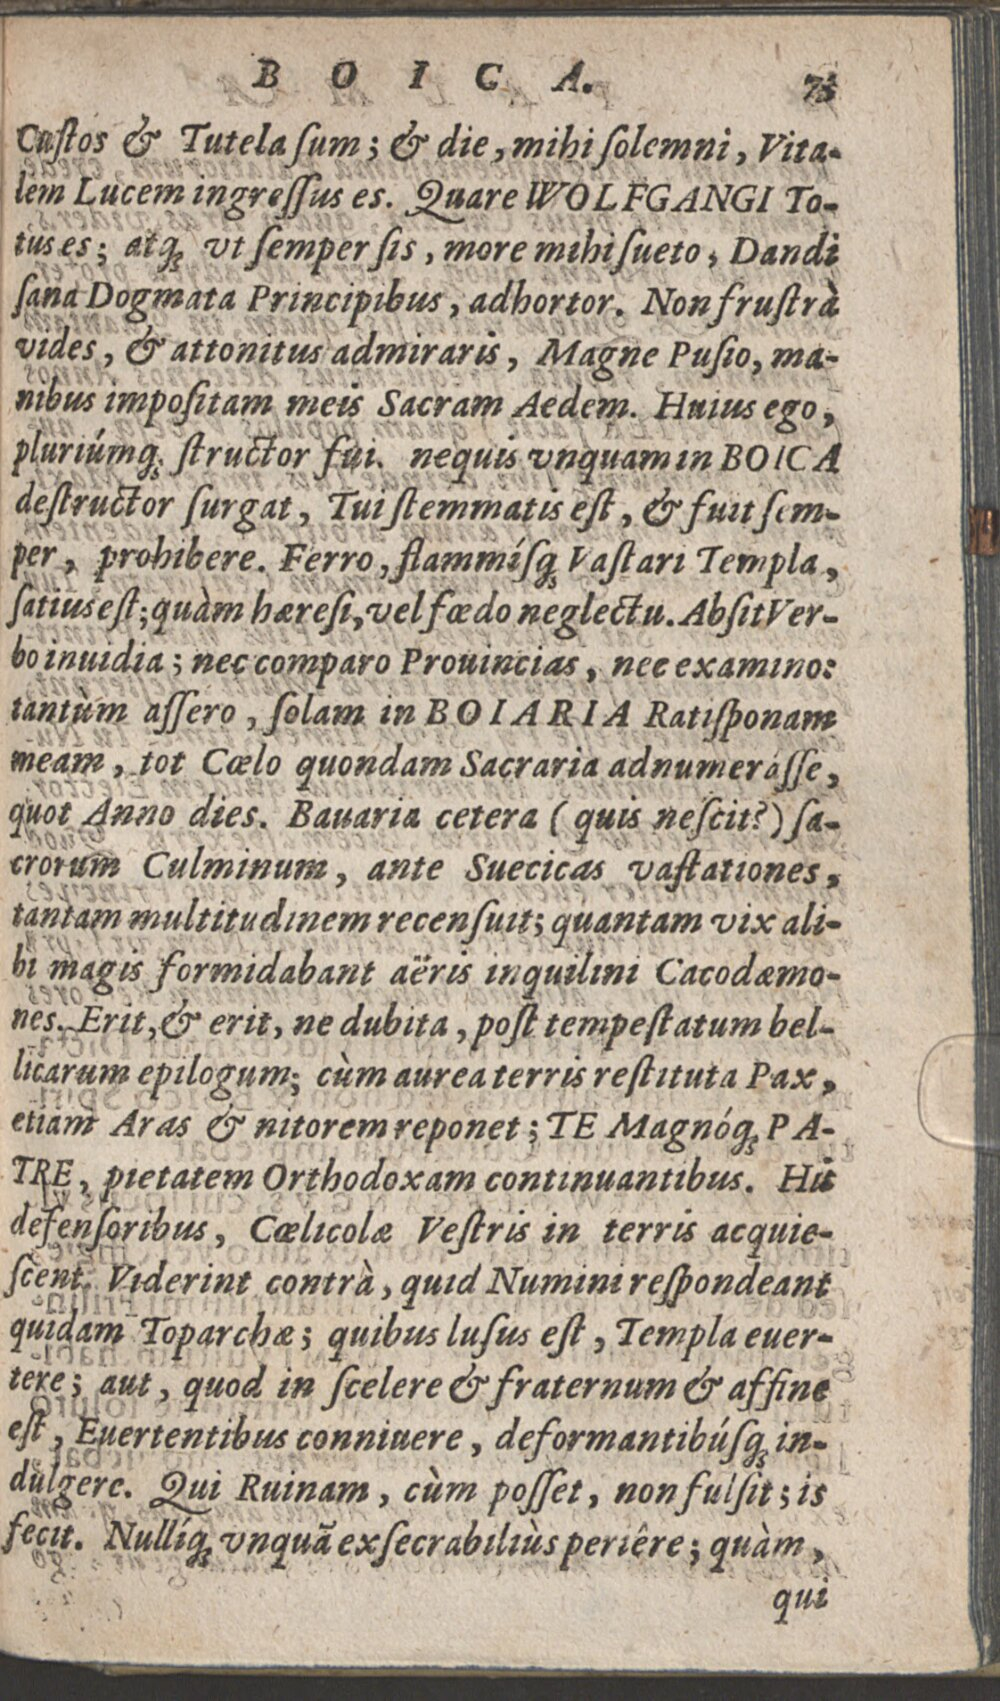 BOICA. 73
Custos & Tutela sum; & die, mihi solemni, Vita-
lem Lucem ingressus es. Quare WOLFGANGI To-
tus es; atq; vt semper sis, more mihi sueto, Dandi
sana Dogmata Principibus, adhortor. Non frustrà
vides, & attonitus admiraris, Magne Pusio, ma-
nibus impositam meis Sacram Aedem. Huius ego,
pluriúmq; structor fui. nequis vnquam in BOICA
destructor surgat, Tui stemmatis est, & fuit sem-
per, prohibere. Ferro, flammísq; Vastari Templa,
satius est; quàm hæresi, vel fœdo neglectu. Absit Ver-
bo inuidia; nec comparo Prouincias, nec examino:
tantùm assero, solam in BOIARIA Ratisponam
meam, tot Cœlo quondam Sacraria adnumerásse,
quot Anno dies. Bauaria cetera (quis nescit?) sa-
crorum Culminum, ante Suecicas vastationes,
tantam multitudinem recensuit; quantam vix ali-
bi magis formidabant aëris inquilini Cacodæmo-
nes. Erit, & erit, ne dubita, post tempestatum bel-
licarum epilogum; cùm aurea terris restituta Pax,
etiam Aras & nitorem reponet; TE Magnóq; PA-
TRE, pietatem Orthodoxam continuantibus. His
defensoribus, Cœlicolæ Vestris in terris acquie-
scent. Viderint contrà, quid Numini respondeant
quidam Toparchæ; quibus lusus est, Templa euer-
tere; aut, quod in scelere & fraternum & affine
est, Euertentibus conniuere, deformantibúsq; in-
dulgere. Qui Ruinam, cùm posset, non fulsit; is
fecit. Nullíq; vnquã exsecrabiliùs periêre; quàm,
qui